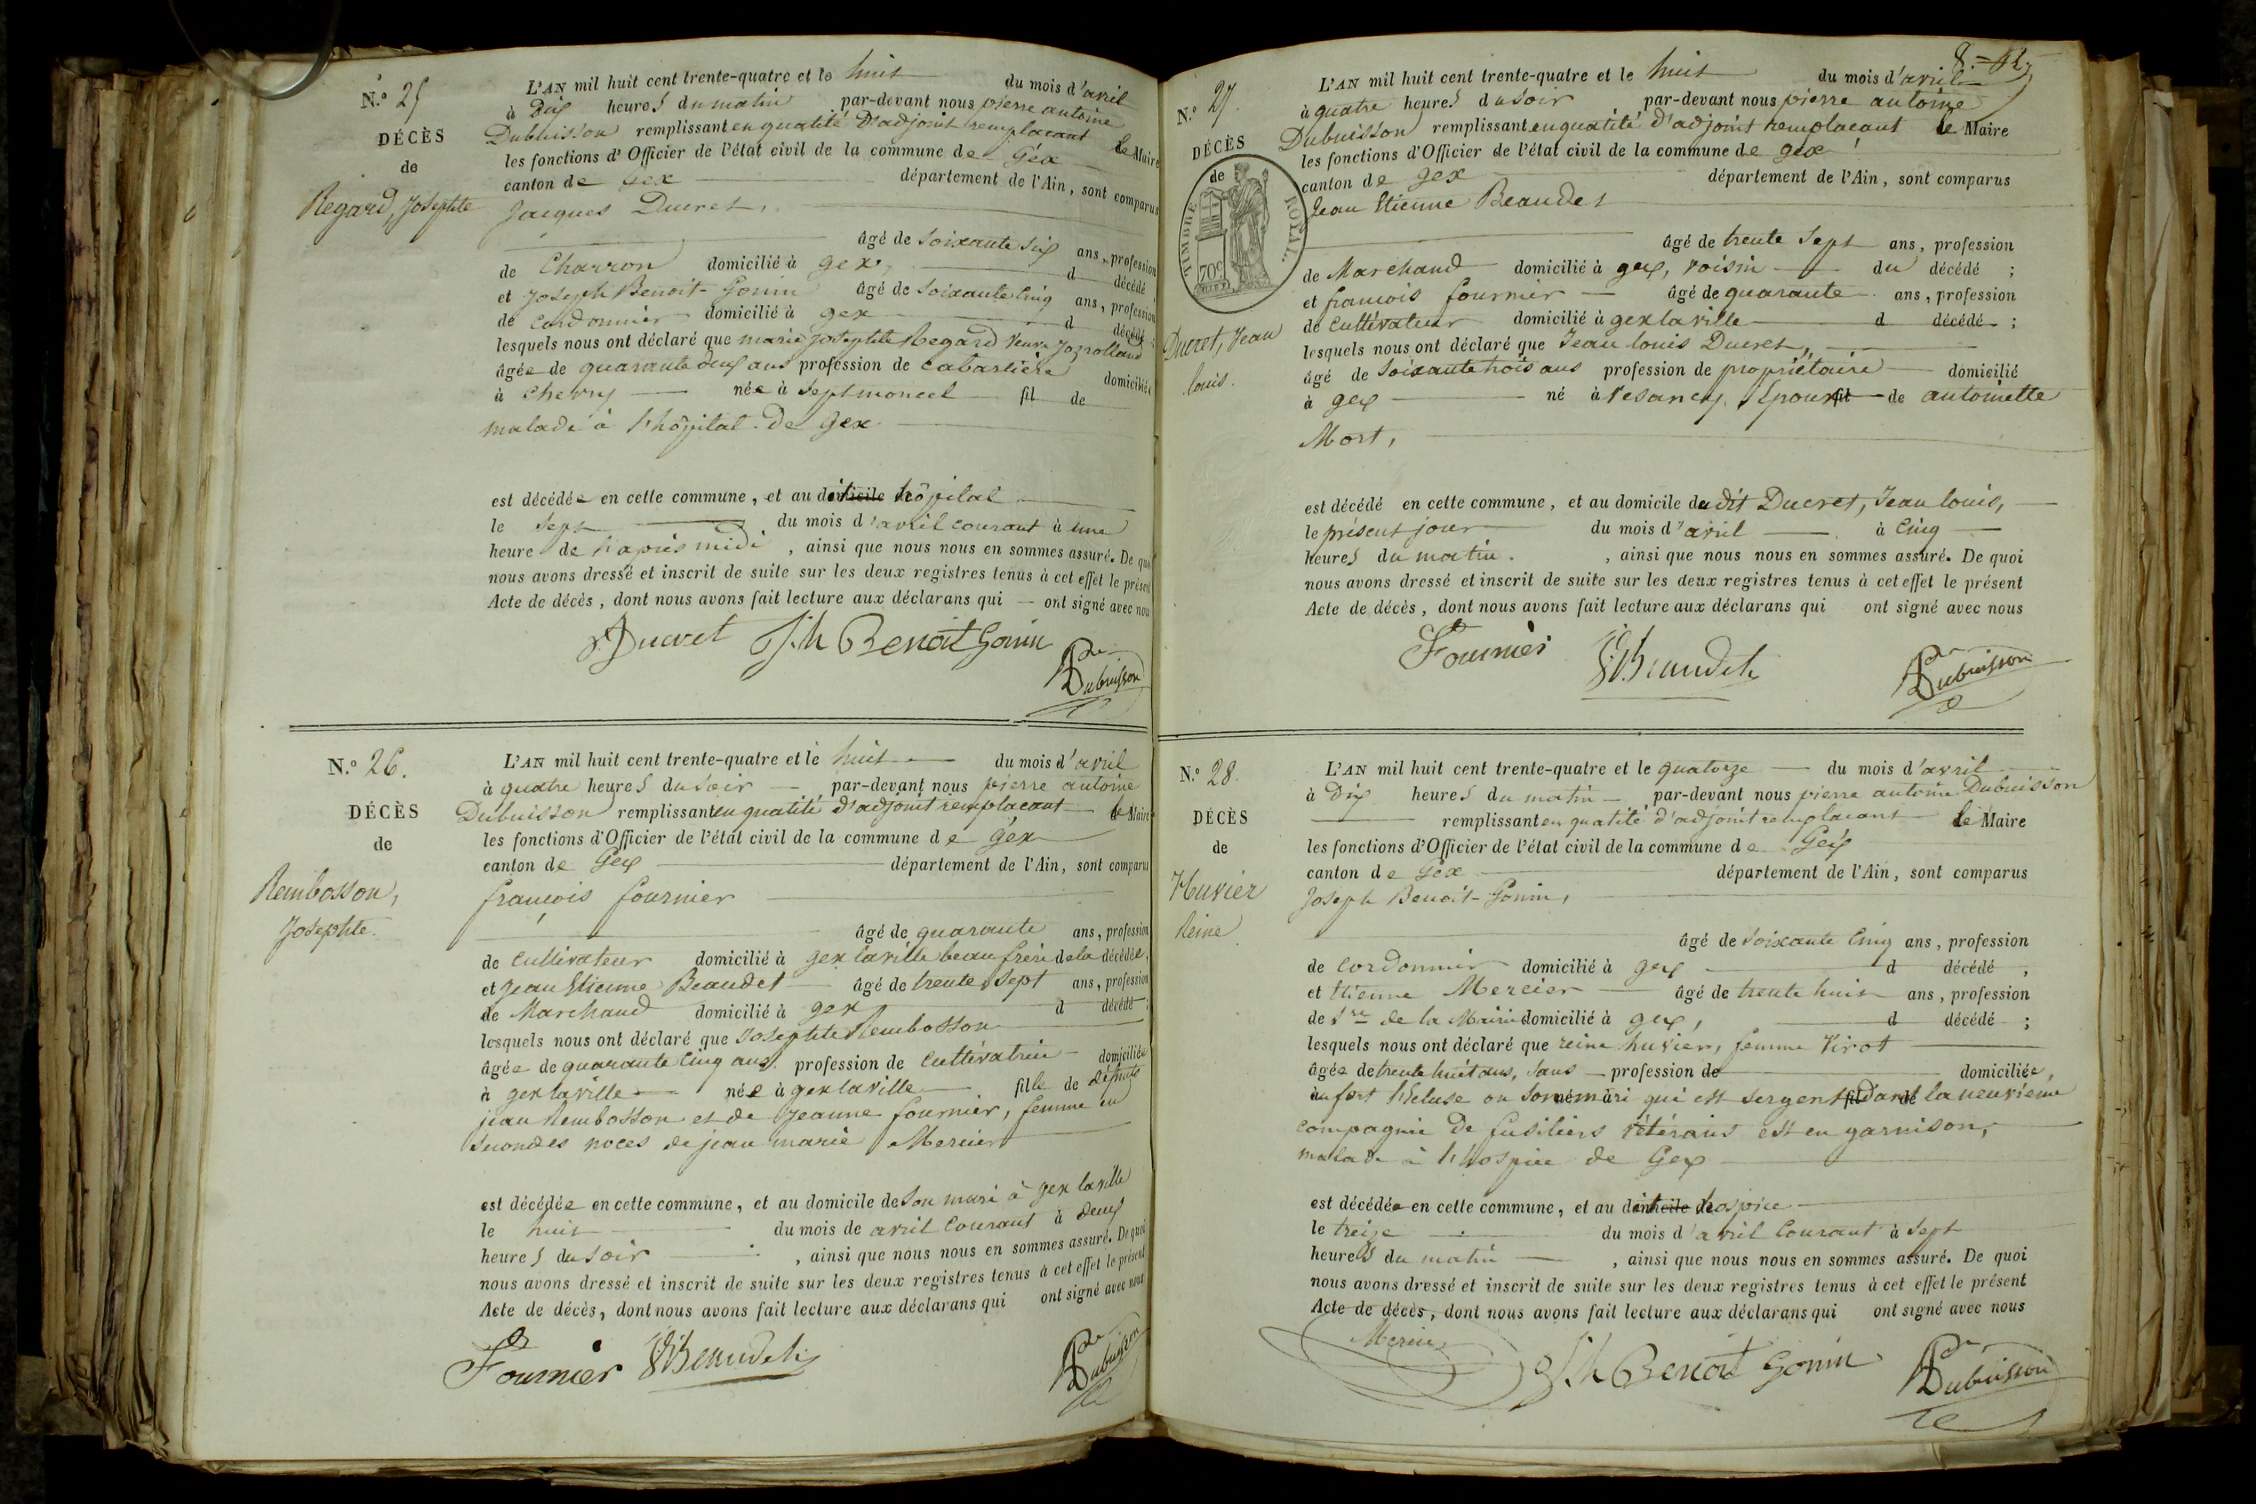 N.º 25
DÉCÈS
de
Regard, Josephte
L'AN mil huit cent trente-quatre et le huit du mois d'avril
à Dix heures du matin par-devant nous pierre antoine
Dubuisson remplissant en qualité d'adjoint remplacant le Maire
les fonctions d'Officier de l'état civil de la commune de Gex
canton de Gex département de l'Ain, sont comparus
Jacques Ducret,
âgé de soixante six ans, profession
de Charron domicilié à gex, d décédé
et Joseph Benoit-Gonin âgé de soixante cinq ans, profession
de cordonnier domicilié à gex d décédé
lesquels nous ont déclaré que marie Josephte Regard veuve Joz rolland
âgée de quarante deux ans profession de cabartière domiciliée
à chevry née à septmoncel fil de
malade à l'hôpital de Gex
est décédée en cette commune, et au domicile hôpital
le sept du mois d'avril courant à une
heure de l'après midi, ainsi que nous nous en sommes assuré. De quoi
nous avons dressé et inscrit de suite sur les deux registres tenus à cet effet le présent
Acte de décès, dont nous avons fait lecture aux déclarans qui ont signé avec nous
Ducret J.h Benoit Gonin
Dubuisson
N.º 26.
DÉCÈS
de
Rembosson,
Josephte.
L'AN mil huit cent trente-quatre et le huit du mois d'avril
à quatre heures du soir par-devant nous pierre antoine
Dubuisson remplissant en qualité d'adjoint remplacant le Maire
les fonctions d'Officier de l'état civil de la commune de Gex
canton de Gex département de l'Ain, sont comparus
françois fournier
âgé de quarante ans, profession
de cultivateur domicilié à gex la ville beau frère de la décédée,
et jean Etienne Beaudet âgé de trente sept ans, profession
de Marchand domicilié à gex d décédé;
lesquels nous ont déclaré que Josephte Rembosson
âgée de quarante cinq ans profession de cultivatrice domiciliée
à gex la ville née à gex la ville fille de défunts
jean Rembosson et de Jeanne fournier, femme en
secondes noces de jean marie Mercier
est décédée en cette commune, et au domicile de son mari à gex la ville
le huit du mois de avril courant à deux
heures du soir, ainsi que nous nous en sommes assuré. De quoi
nous avons dressé et inscrit de suite sur les deux registres tenus à cet effet le présent
Acte de décès, dont nous avons fait lecture aux déclarans qui ont signé avec nous
Fournier Beaudet
Dubuisson
N.º 27.
DÉCÈS
de
TIMBRE ROYAL
70c
Ducret, Jean
louis.
L'AN mil huit cent trente-quatre et le huit du mois d'avril
à quatre heures du soir par-devant nous pierre antoine
Dubuisson remplissant en qualité d'adjoint remplacant le Maire
les fonctions d'Officier de l'état civil de la commune de gex
canton de gex département de l'Ain, sont comparus
Jean Etienne Beaudet
âgé de trente sept ans, profession
de Marchand domicilié à gex, voisin du décédé;
et françois fournier âgé de quarante ans, profession
de cultivateur domicilié à gex la ville d décédé;
lesquels nous ont déclaré que Jean louis Ducret,
âgé de soixante trois ans profession de propriétaire domicilié
à gex né à vesancy, Epoux fil de antoinette
Mort,
est décédé en cette commune, et au domicile dudit Ducret, Jean louis,
le présent jour du mois d'avril à cinq
heures du matin., ainsi que nous nous en sommes assuré. De quoi
nous avons dressé et inscrit de suite sur les deux registres tenus à cet effet le présent
Acte de décès, dont nous avons fait lecture aux déclarans qui ont signé avec nous
Fournier Beaudet
Dubuisson
N.º 28.
DÉCÈS
de
Huvier
Reine
L'AN mil huit cent trente-quatre et le quatorze du mois d'avril
à Dix heures du matin par-devant nous pierre antoine Dubuisson
remplissant en qualité d'adjoint remplacant le Maire
les fonctions d'Officier de l'état civil de la commune de Gex
canton de Gex département de l'Ain, sont comparus
Joseph Benoit-Gonin,
âgé de soixante cinq ans, profession
de cordonnier domicilié à gex d décédé,
et Etienne Mercier âgé de trente huit ans, profession
de S.re de la Mairie domicilié à gex, d décédé;
lesquels nous ont déclaré que reine huvier, femme Virot
âgée de trente huit ans, sans profession de domiciliée,
au fort l'écluse ou son mari qui est sergent dans la neuvieme
compagnie de fusiliers vétérans est en garnison,
malade à l'hospice de Gex
est décédée en cette commune, et au domicile hospice
le treize du mois d'avril courant à sept
heures du matin, ainsi que nous nous en sommes assuré. De quoi
nous avons dressé et inscrit de suite sur les deux registres tenus à cet effet le présent
Acte de décès, dont nous avons fait lecture aux déclarans qui ont signé avec nous
Mercier J.h Benoit Gonin
Dubuisson